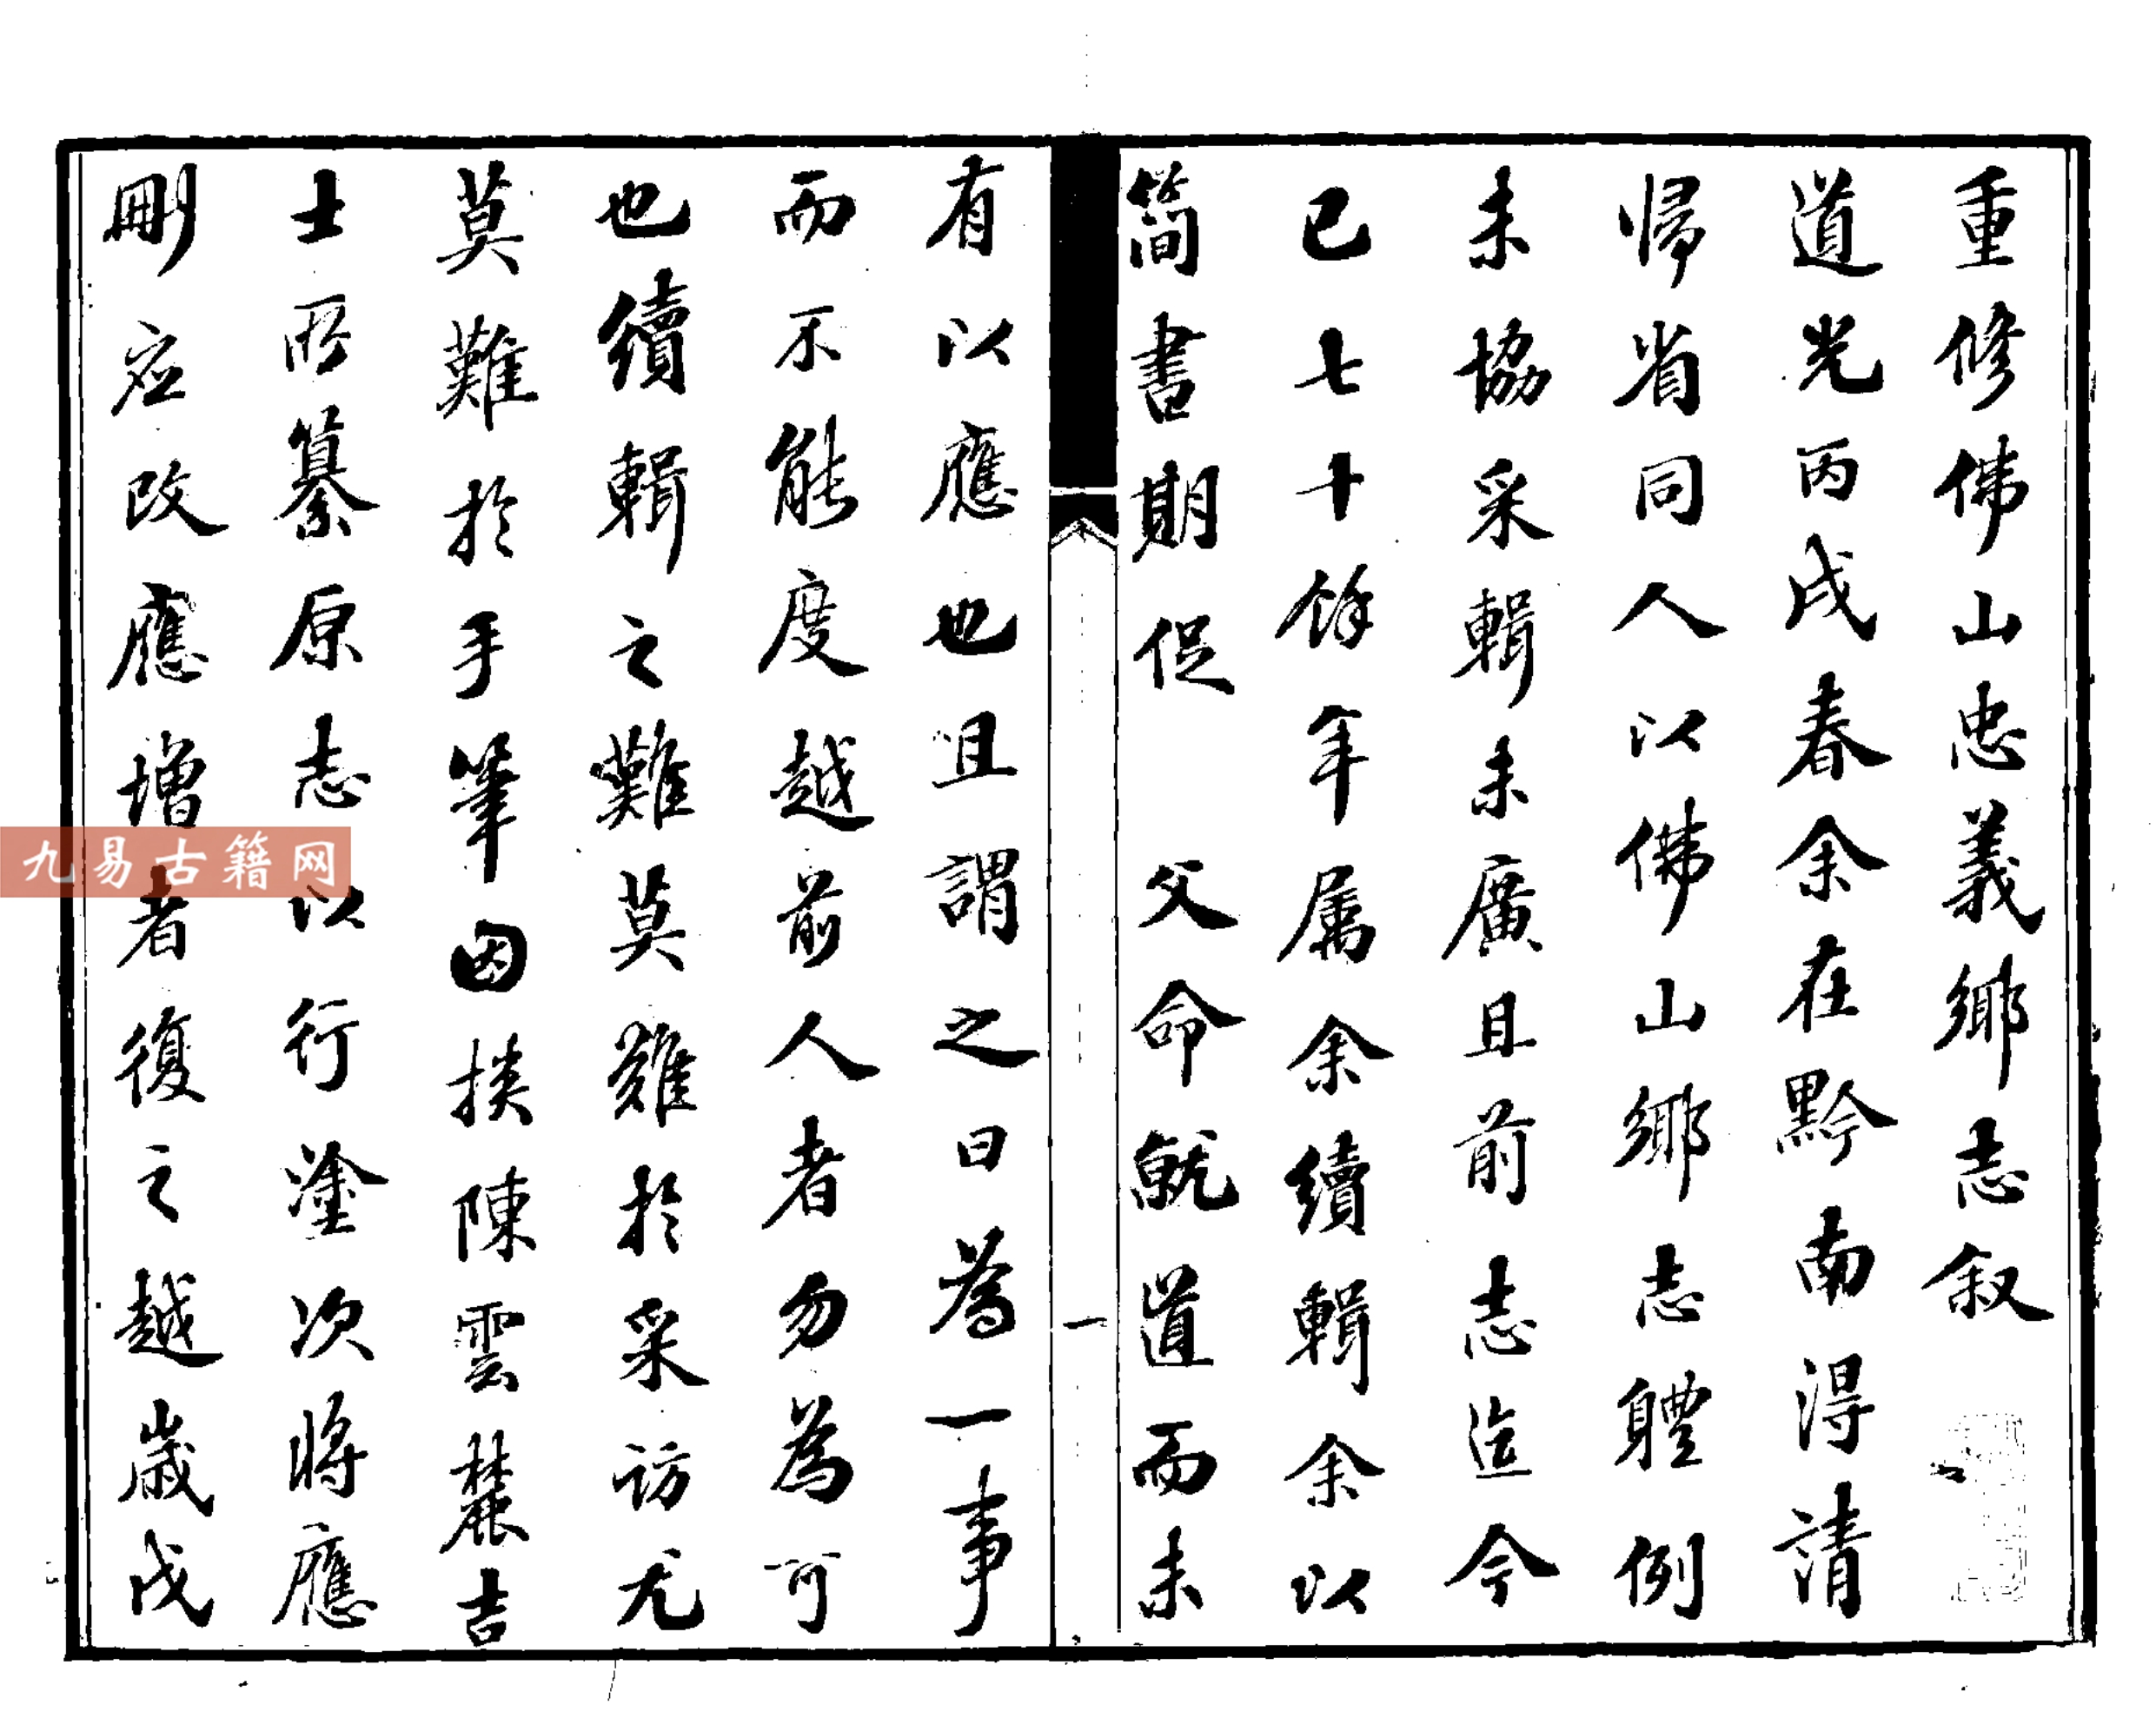 重修佛山忠義鄉志叙
道光丙戌春余在黔南得請
歸省同人以佛山鄉志體例
未協采輯未廣且前志迄今
已七十餘年属余續輯余以
簡書期促 父命就道而未
一
有以應也且謂之曰為一事
而不能度越前人者勿為可
也續輯之難莫難於采訪尤
莫難於手筆因掞陳雲麓吉
士所纂原志以行塗次將應
刪应改應增者復之越歲戊
九易古籍网